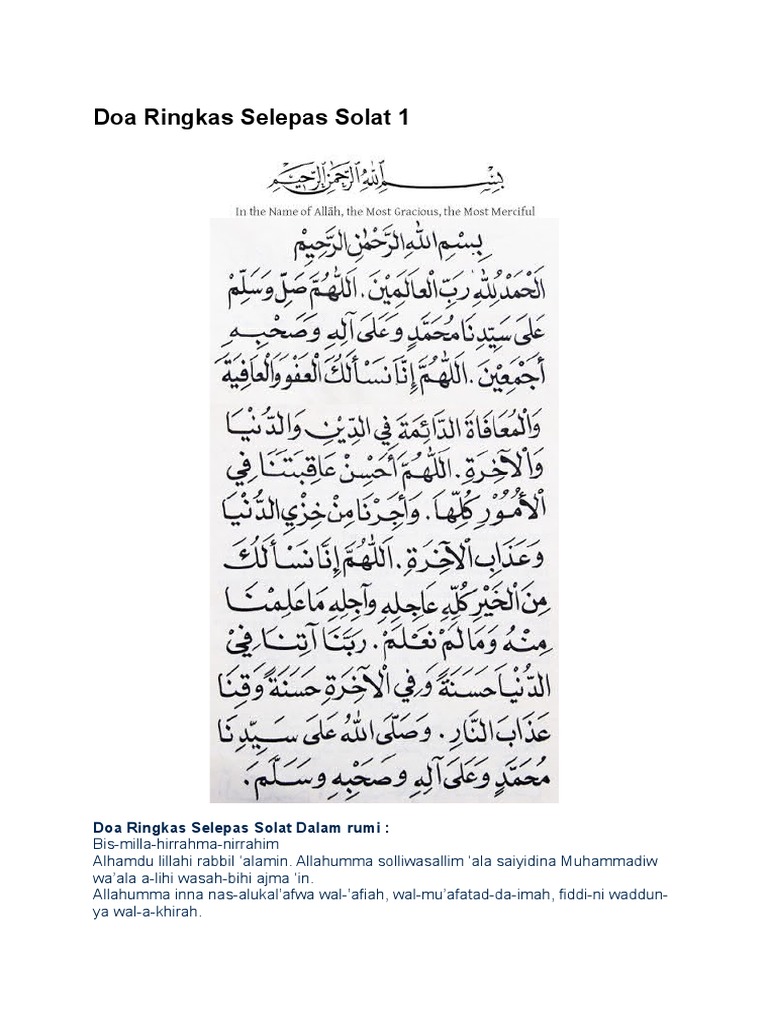 Doa Ringkas Selepas Solat 1
بِسْمِ اللهِ الرَّحْمٰنِ الرَّحِيْمِ
In the Name of Allāh, the Most Gracious, the Most Merciful
بِسْمِ اللهِ الرَّحْمٰنِ الرَّحِيْمِ
اَلْحَمْدُ لِلّٰهِ رَبِّ الْعَالَمِيْنَ. اَللّٰهُمَّ صَلِّ وَسَلِّمْ
عَلَى سَيِّدِنَا مُحَمَّدٍ وَعَلَى آلِهِ وَصَحْبِهِ
أَجْمَعِيْنَ. اَللّٰهُمَّ إِنَّا نَسْأَلُكَ الْعَفْوَ وَالْعَافِيَةَ
وَالْمُعَافَاةَ الدَّائِمَةَ فِي الدِّيْنِ وَالدُّنْيَا
وَالْآخِرَةِ. اَللّٰهُمَّ أَحْسِنْ عَاقِبَتَنَا فِي
الْأُمُوْرِ كُلِّهَا. وَأَجِرْنَا مِنْ خِزْيِ الدُّنْيَا
وَعَذَابِ الْآخِرَةِ. اَللّٰهُمَّ إِنَّا نَسْأَلُكَ
مِنَ الْخَيْرِ كُلِّهِ عَاجِلِهِ وَآجِلِهِ مَا عَلِمْنَا
مِنْهُ وَمَا لَمْ نَعْلَمْ. رَبَّنَا آتِنَا فِيْ
الدُّنْيَا حَسَنَةً وَفِي الْآخِرَةِ حَسَنَةً وَقِنَا
عَذَابَ النَّارِ. وَصَلَّى اللهُ عَلَى سَيِّدِنَا
مُحَمَّدٍ وَعَلَى آلِهِ وَصَحْبِهِ وَسَلَّمَ.
Doa Ringkas Selepas Solat Dalam rumi :
Bis-milla-hirrahma-nirrahim
Alhamdu lillahi rabbil ‘alamin. Allahumma solliwasallim ‘ala saiyidina Muhammadiw
wa’ala a-lihi wasah-bihi ajma ‘in.
Allahumma inna nas-alukal’afwa wal-’afiah, wal-mu’afatad-da-imah, fiddi-ni waddun-
ya wal-a-khirah.